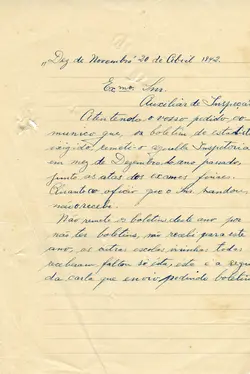 "Dez de Novembro" 20 de Abril 1942.
Exmo. Snr.
Auxiliar de Inspeção
Atendendo o vosso pedido, co-
munico que, os boletins de estatist
exigido remeti-o aquela Inspetoria
em mez de Dezembro do ano passado,
junto as atas dos exames finais.
Quanto ao oficio que o Snr. mandou,
não recebi.
Não remeti o boletim deste ano por
não ter boletins, não recebi para este
ano, as outras escolas visinhas todas
receberam, faltou só esta, esta é a segun
da carta que envio pedindo boletin